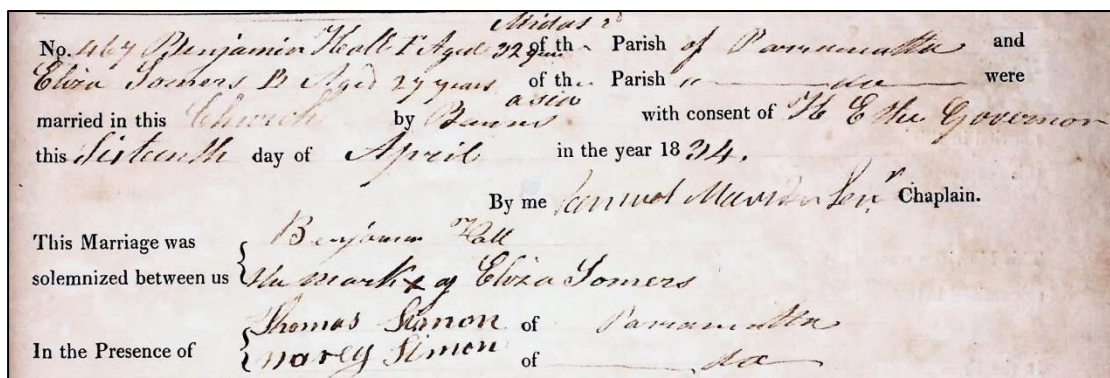 Midas 2d
No. 467 Benjamin Hall F Aged 32 years of the Parish of Parramatta and
Eliza Somers B Aged 27 years of the Parish " do were
asia
married in this Church by Banns with consent of H E the Governor
this Sixteenth day of April in the year 1834.
By me Samuel Marsden Senr Chaplain.
This Marriage was
solemnized between us
Benjamin Hall
the mark x of Eliza Somers
In the Presence of
Thomas Simon of Parramatta
Marey Simon of do